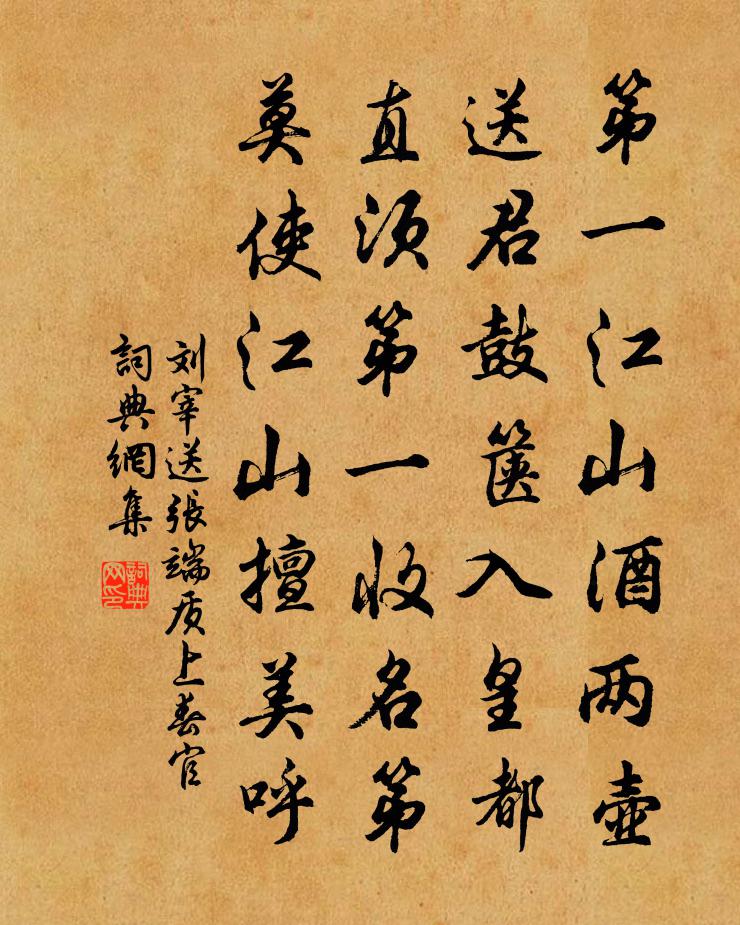 第一江山酒两壶
送君鼓箧入皇都
直须第一收名第
莫使江山擅美呼
刘宰送張端质上春官
詞典網集
詞典网印